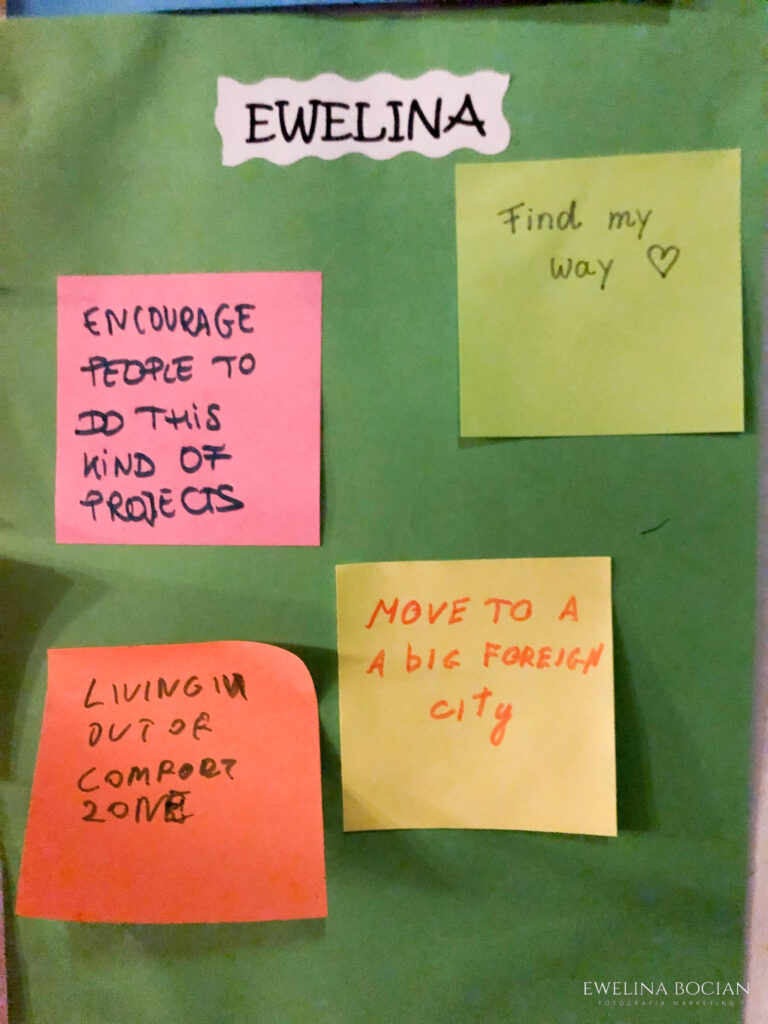 EWELINA
Find my
way ♡
ENCOURAGE
PEOPLE TO
DO THIS
KIND OF
PROJECTS
MOVE TO A
A BIG FOREIGN
CITY
LIVING IN
OUT OF
COMFORT
ZONE
EWELINA BOCIAN
FOTOGRAFIA MARKETING